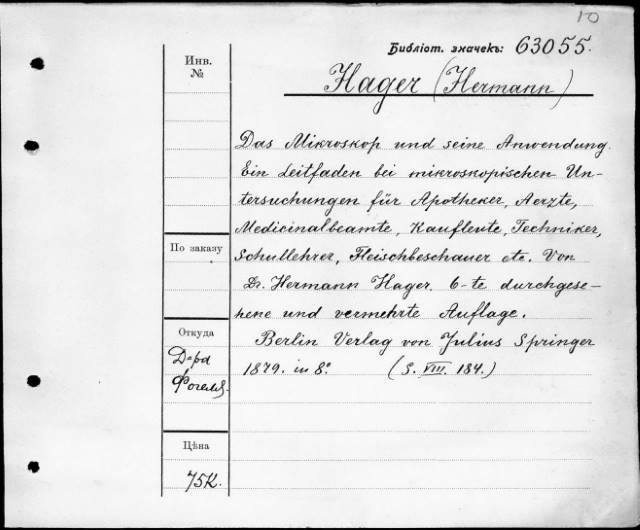 10
Библіот. значекъ: 63055.
Hager (Hermann)
Инв.
№
Das Mikroskop und seine Anwendung.
Ein Leitfaden bei mikroskopischen Un-
tersuchungen für Apotheker, Aerzte,
Medicinalbeamte, Kaufleute, Techniker,
Schullehrer, Fleischbeschauer etc. Von
Dr. Hermann Hager. 6-te durchgese-
hene und vermehrte Auflage.
Berlin Verlag von Julius Springer
1879. in 8°. (S. VIII. 184.)
По заказу
Откуда
Д-ра
Фогеля.
Цѣна
75к.